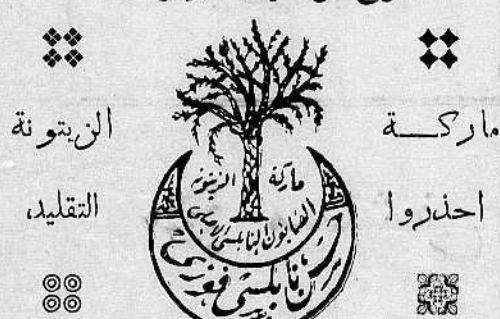 ماركـــة الزيتونة
احذروا التقليد،
ماركة الزيتونة
الصابون النابلسي الاصلي
نابلسي فوزي